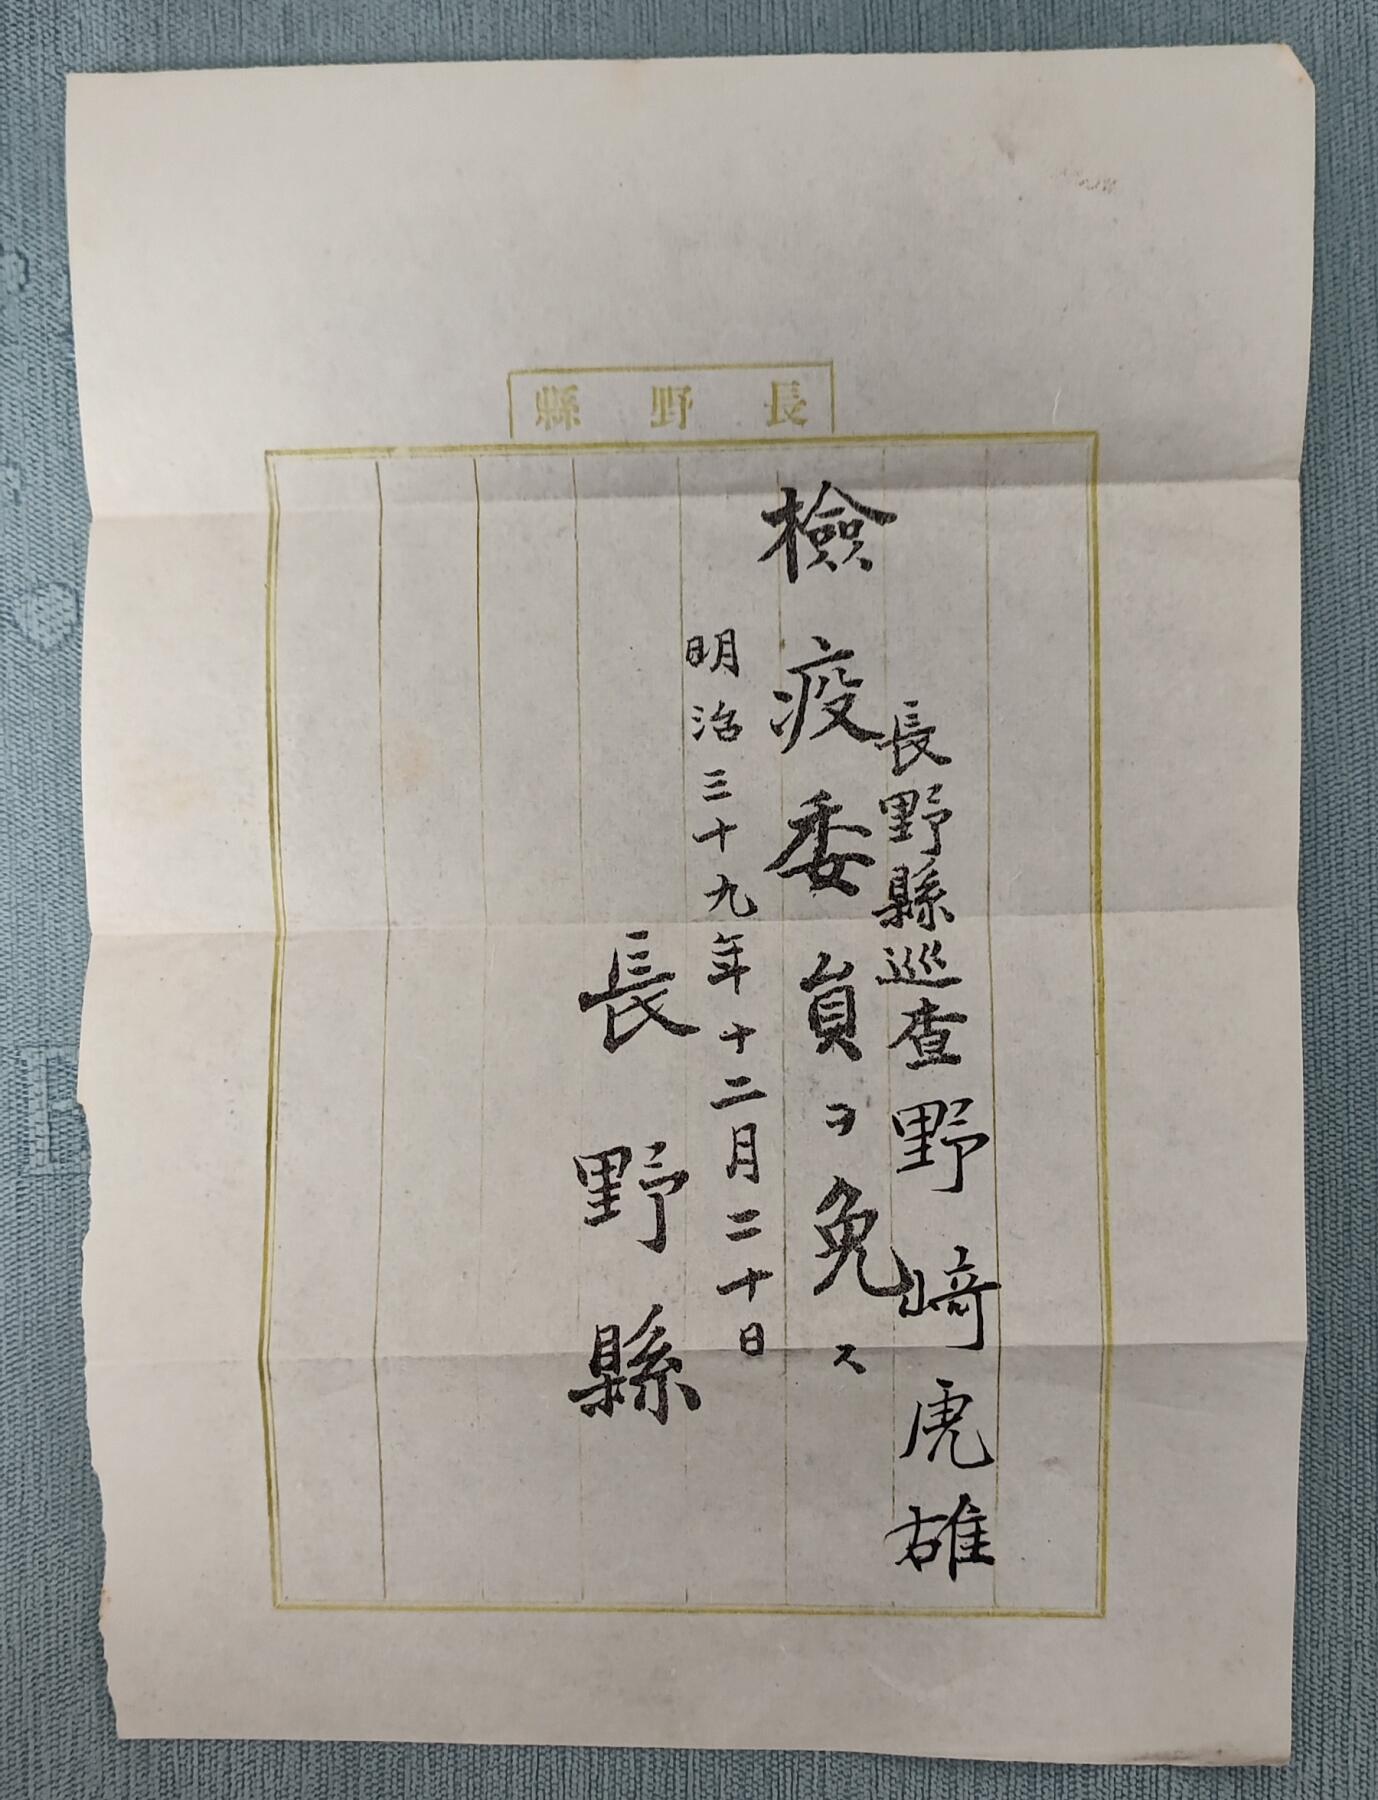 長野縣
長野縣巡查野﨑虎雄
檢疫委員ヲ免ス
明治三十九年十二月二十日
長野縣